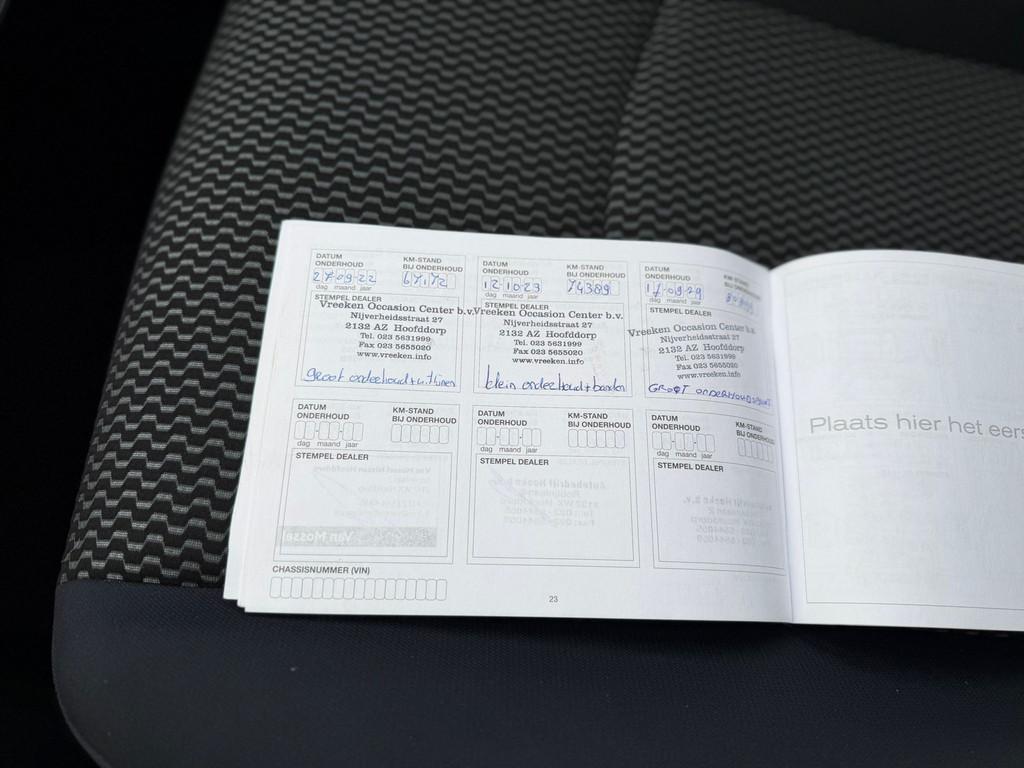 DATUM ONDERHOUD
KM-STAND BIJ ONDERHOUD
27 09 22
67172
dag maand jaar
STEMPEL DEALER
Vreeken Occasion Center b.v.
Nijverheidsstraat 27
2132 AZ Hoofddorp
Tel. 023 5631999
Fax 023 5655020
www.vreeken.info
groot onderhoud +
DATUM ONDERHOUD
KM-STAND BIJ ONDERHOUD
12 10 23
74389
dag maand jaar
STEMPEL DEALER
Vreeken Occasion Center b.v.
Nijverheidsstraat 27
2132 AZ Hoofddorp
Tel. 023 5631999
Fax 023 5655020
www.vreeken.info
klein onderhoud + banden
DATUM ONDERHOUD
KM-STAND BIJ ONDERHOUD
17 09
dag maand jaar
STEMPEL DEALER
Vreeken Occasion Center b.v.
Nijverheidsstraat 27
2132 AZ Hoofddorp
Tel. 023 5631999
Fax 023 5655020
www.vreeken.info
GROOT ONDERHOUD
DATUM ONDERHOUD
KM-STAND BIJ ONDERHOUD
dag maand jaar
STEMPEL DEALER
DATUM ONDERHOUD
KM-STAND BIJ ONDERHOUD
dag maand jaar
STEMPEL DEALER
DATUM ONDERHOUD
KM-STAND BIJ ONDERHOUD
dag maand jaar
STEMPEL DEALER
CHASSISNUMMER (VIN)
23
Plaats hier het eers